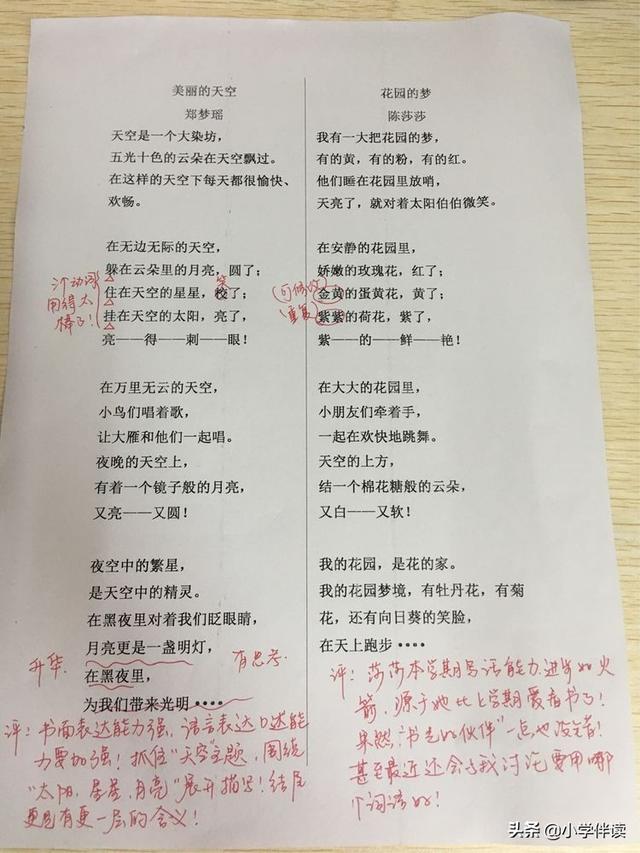 美丽的天空
郑梦瑶
天空是一个大染坊，
五光十色的云朵在天空飘过。
在这样的天空下每天都很愉快、
欢畅。
在无边无际的天空，
躲在云朵里的月亮，圆了；
笑
住在天空的星星，校了；
挂在天空的太阳，亮了，
亮——得——刺——眼！
动词
用得太
棒了！
在万里无云的天空，
小鸟们唱着歌，
让大雁和他们一起唱。
夜晚的天空上，
有着一个镜子般的月亮，
又亮——又圆！
夜空中的繁星，
是天空中的精灵。
在黑夜里对着我们眨眼睛，
月亮更是一盏明灯，
在黑夜里，
为我们带来光明····
升华
有思考.
评：书面表达能力强，语言表达口述能
力要加强！抓住“天空”主题，围绕
“太阳、星星、月亮”展开描写！结尾
更是有更一层的含义！
花园的梦
陈莎莎
我有一大把花园的梦，
有的黄，有的粉，有的红。
他们睡在花园里放哨，
天亮了，就对着太阳伯伯微笑。
在安静的花园里，
娇嫩的玫瑰花，红了；
金黄的蛋黄花，黄了；
紫紫的荷花，紫了，
紫——的——鲜——艳！
可修改
重复
在大大的花园里，
小朋友们牵着手，
一起在欢快地跳舞。
天空的上方，
结一个棉花糖般的云朵，
又白——又软！
我的花园，是花的家。
我的花园梦境，有牡丹花，有菊
花，还有向日葵的笑脸，
在天上跑步····
评：莎莎本学期写话能力进步如火
箭，源于她比上学期爱看书了！
果然“书是的伙伴”一点也没错！
甚至最近还会与我讨论要用哪
个词语好！
头条 @小学伴读